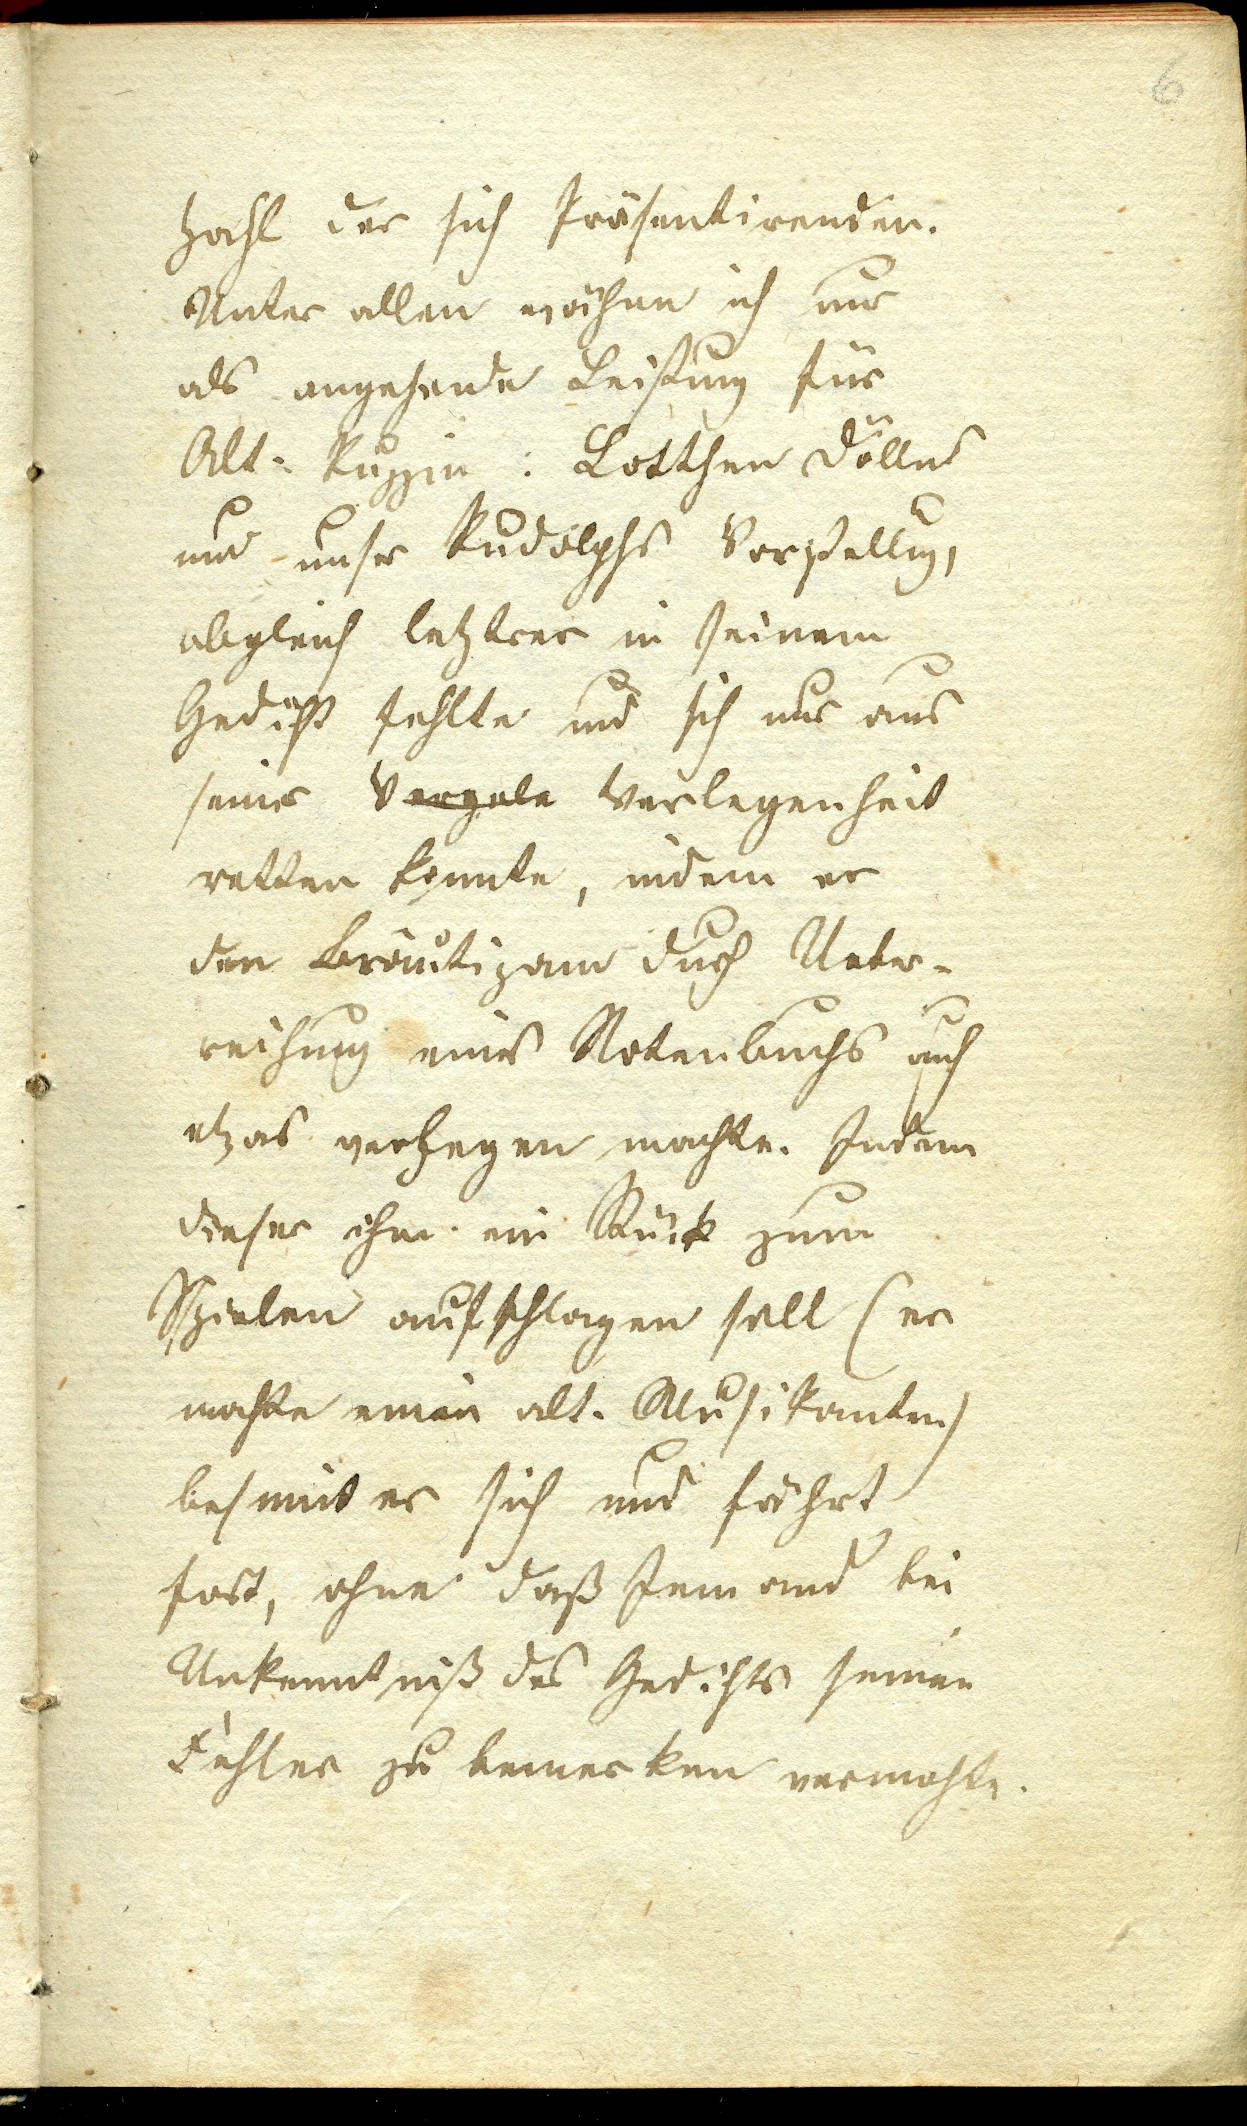 6
Zahl der sich Präsentirenden.
Unter allen erwähne ich nur
als angehende Leistung für
Alt-Ruppin: Lottchen Döllns
und unsr Rudolphs Vorstellung,
obgleich letzterer in seinem
Gedicht fehlte und sich nur aus
seiner Verlegenheit
retten konnte, indem er
den Bräutigam durch Ueber-
reichung eines Notenbuchs auch
etwas verlegen machte. Indem
dieser ihm ein Stück zum
Spielen aufschlagen soll (er
machte einen alt. Musikanten)
besinnt er sich und fährt
fort, ohne daß Jemand bei
Unkenntniß des Gedichts seinen
Fehler zu bemerken vermochte.